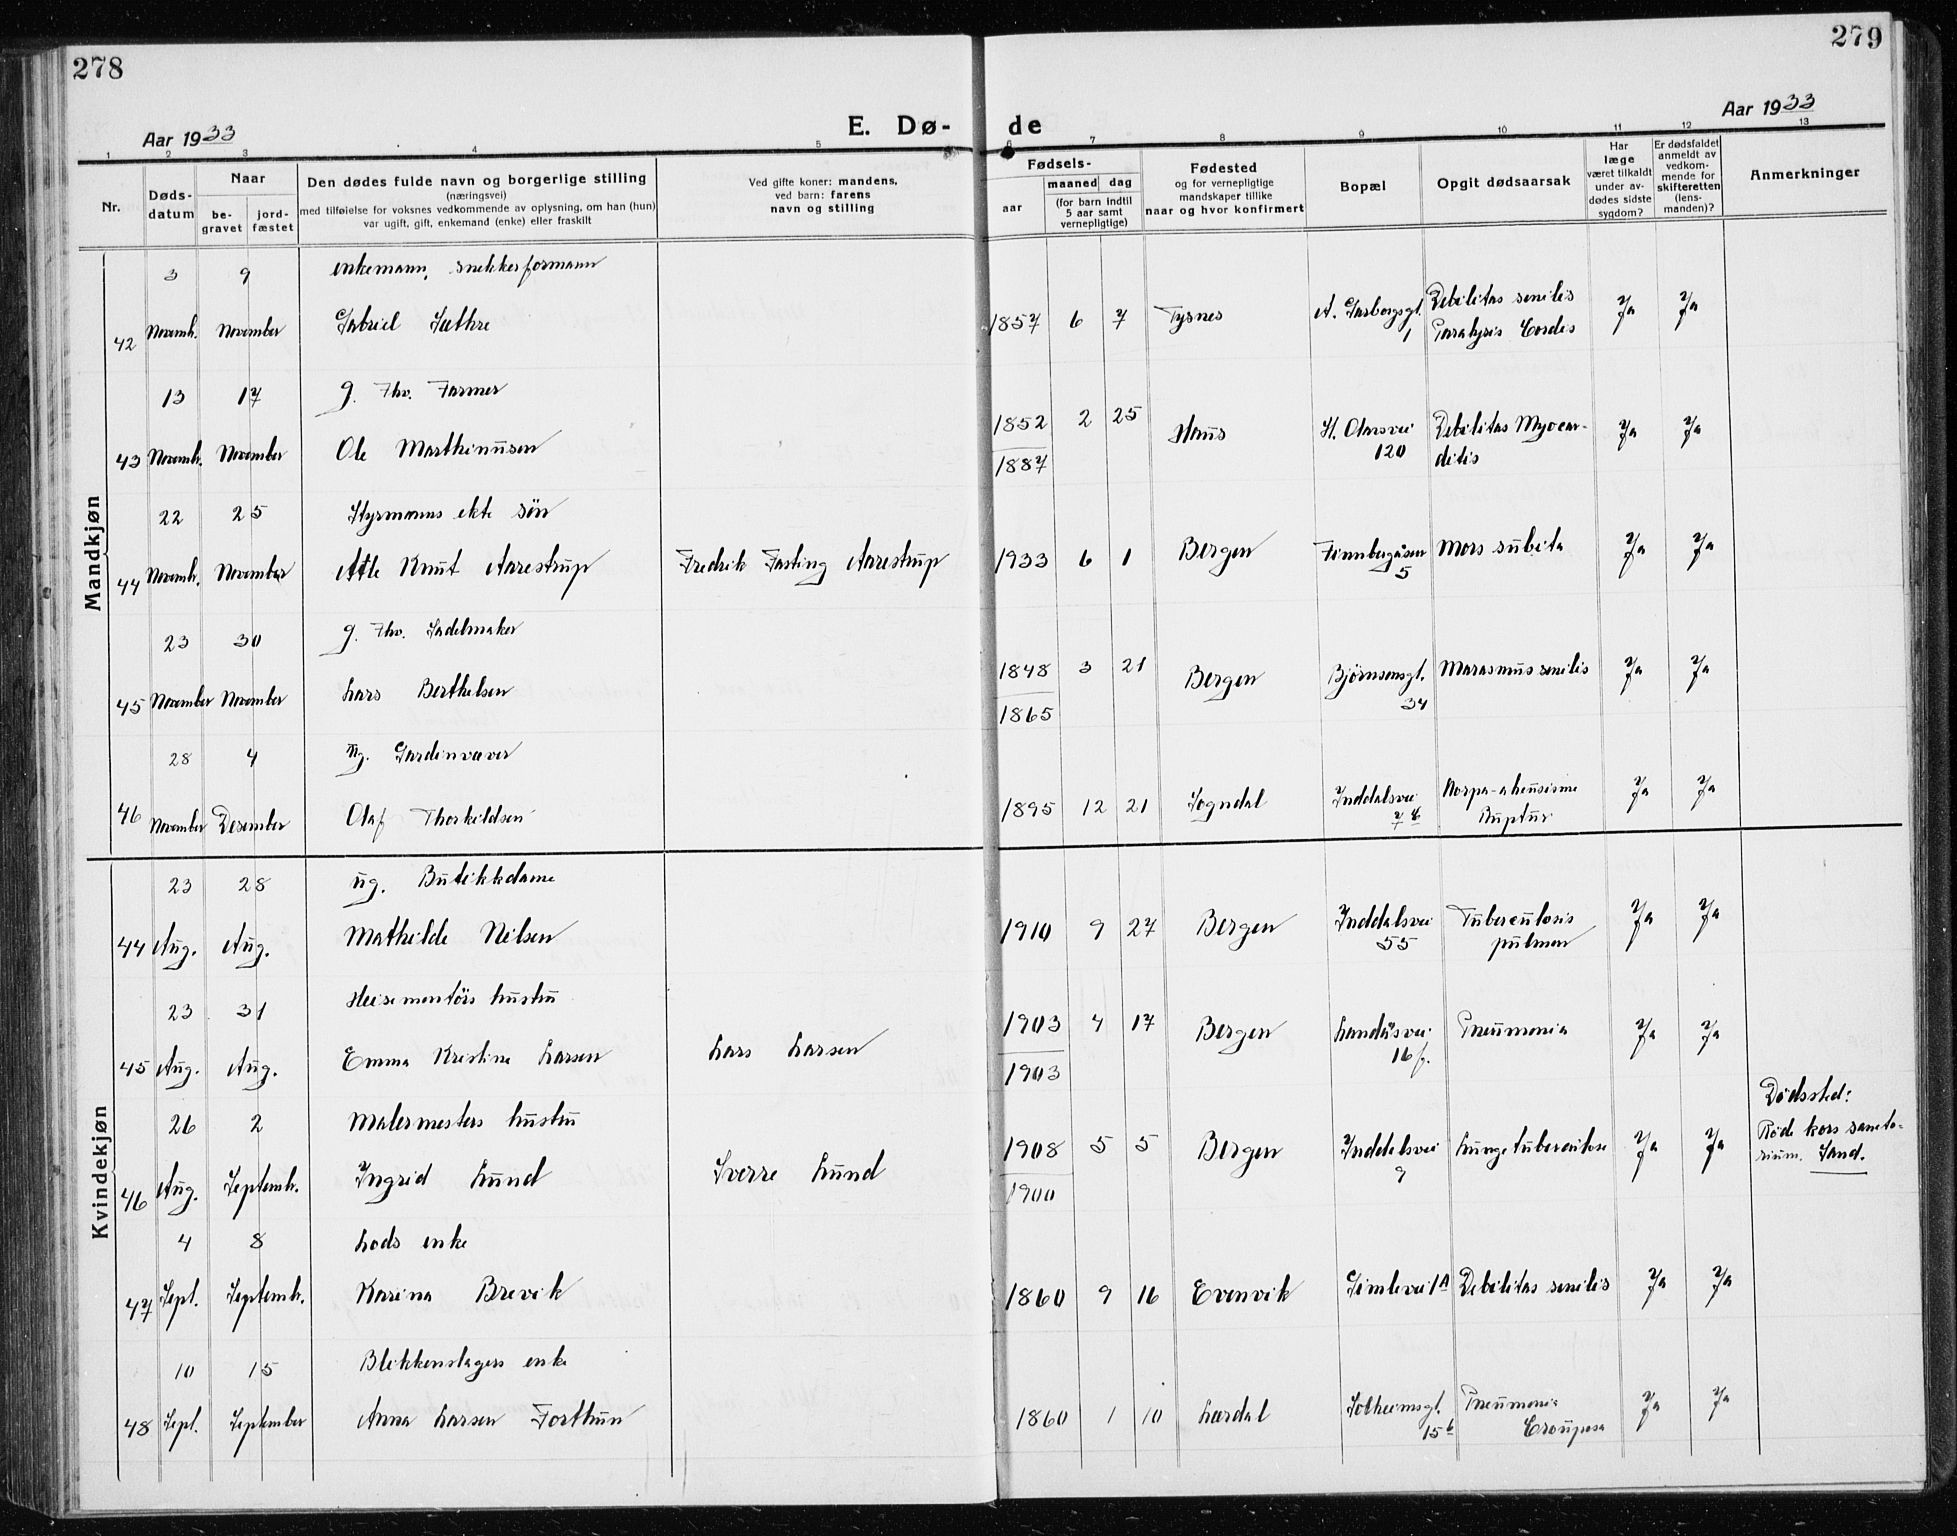 278
279
Aar 1933
E. Dø-
de
Aar 1933
1 2 3 4 5 6 7 8 9 10 11 12 13
Nr.
Døds-
datum
Naar
be-
gravet
jord-
fæstet
Den dødes fulde navn og borgerlige stilling
(næringsvei)
med tilføielse for voksnes vedkommende av oplysning, om han (hun)
var ugift, gift, enkemand (enke) eller fraskilt
Ved gifte koner: mandens,
ved barn: farens
navn og stilling
Fødsels-
aar
maaned dag
(for barn indtil
5 aar samt
vernepligtige)
Fødested
og for vernepligtige
mandskaper tillike
naar og hvor konfirmert
Bopæl
Opgit dødsaarsak
Har
læge
været tilkaldt
under av-
dødes sidste
sygdom?
Er dødsfaldet
anmeldt av
vedkom-
mende for
skifteretten
(lens-
manden)?
Anmerkninger
Mandkjøn
3 9 enkemann, snekkerformann
42 Novemb. November Gabriel Sæthre 1857 6 7 Tysnes A. Garborgsgt. 1 Debilitas senilis Ja Ja
Paralysis Cordis
13 17 g. Fhv. Farmer
43 Novemb. November Ole Marthinusen 1852 2 25 Haus St. Olavsvei 120 Debilitas Myocar- Ja Ja
1887 ditis
22 25 Styrmanns ekte søn
44 Novemb. November Atle Knut Aarestrup Fredrik Fasting Aarestrup 1933 6 1 Bergen Finnbergåsen 5 Mors subita Ja Ja
23 30 g. Fhv. Sadelmaker
45 November November Lars Berthelsen 1848 3 21 Bergen Bjørnsonsgt. 34 Marasmus senilis Ja Ja
1865
28 4 ug. Gardinvæver
46 November Desember Olaf Thorkildsen 1895 12 21 Sogndal Inddalsvei Ja Ja
Ruptur
Kvindekjøn
23 28 ug. Butikkdame
44 Aug. Aug. Mathilde Nilsen 1910 9 27 Bergen Inddalsvei 55 Tuberculosis Ja Ja
pulmon
23 31 Heisemontørs hustru
45 Aug. Aug. Emma Kristine Larsen Lars Larsen 1903 4 17 Bergen Landåsvei 16 f. Pneumonia Ja Ja
1903
26 2 Malermesters hustru
46 Aug. Septemb. Ingrid Lund Sverre Lund 1908 5 5 Bergen Inddalsvei 9 Lungetuberculose Ja Ja
1900
Dødssted:
Røde kors sanato-
rium. Sand.
4 8 Lods enke
47 Sept. Septemb. Karina Brevik 1860 9 16 Evenvik Gimlevei 1A Debilitas senilis Ja Ja
10 15 Blikkenslagers enke
48 Sept. September Anna Larsen Forthun 1860 1 10 Lærdal Solheimsgt. 15b Pneumonia Ja Ja
Crouposa